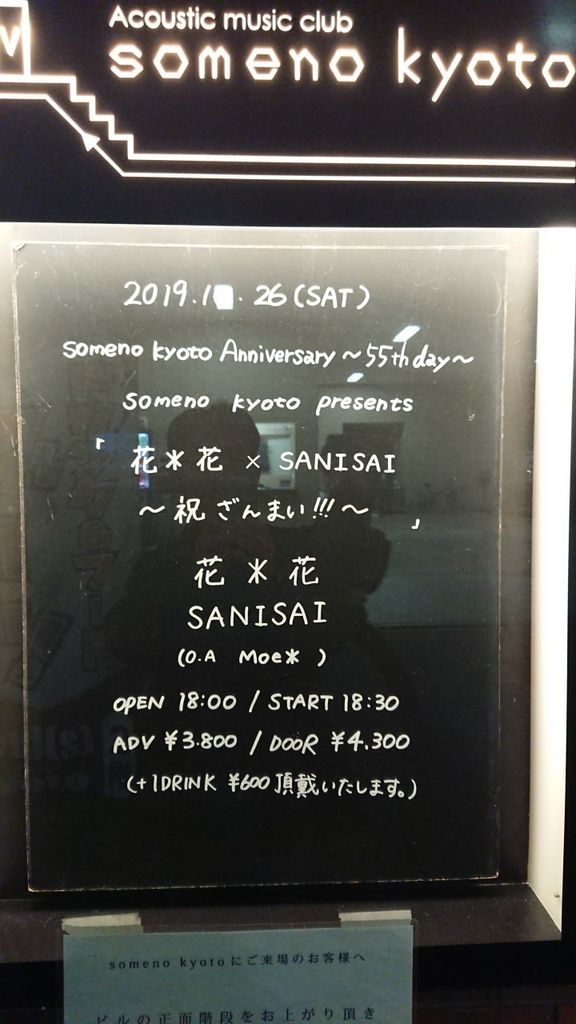 Acoustic music club
someno kyoto
2019.1 . 26 (SAT)
someno kyoto Anniversary ～55th day～
someno kyoto presents
「花＊花 × SANISAI
～祝 ざんまい!!!～」
花＊花
SANISAI
(O.A Moe＊ )
OPEN 18:00 / START 18:30
ADV ¥3.800 / DOOR ¥4.300
(+1DRINK ¥600 頂戴いたします。)
someno kyotoにご来場のお客様へ
ビルの正面階段をお上がり頂き